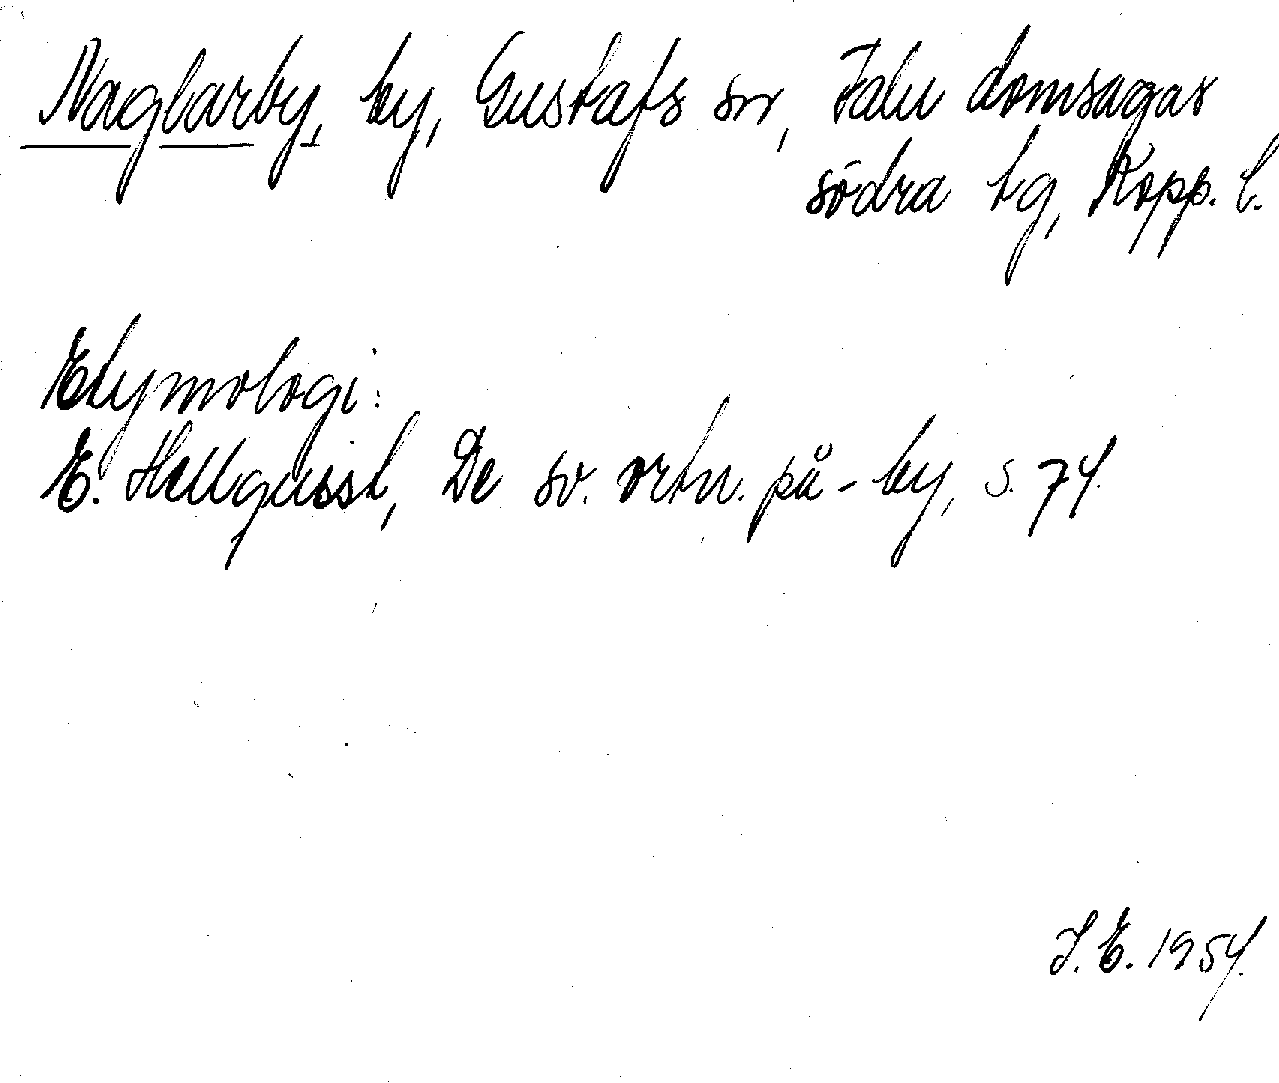 Naglarby, by, Gustafs sn, Falu domsagas
södra tg, Kopp. l.
Etymologi:
E. Hellquist, De sv. ortn. på -by, s. 74.
J. E. 1954.